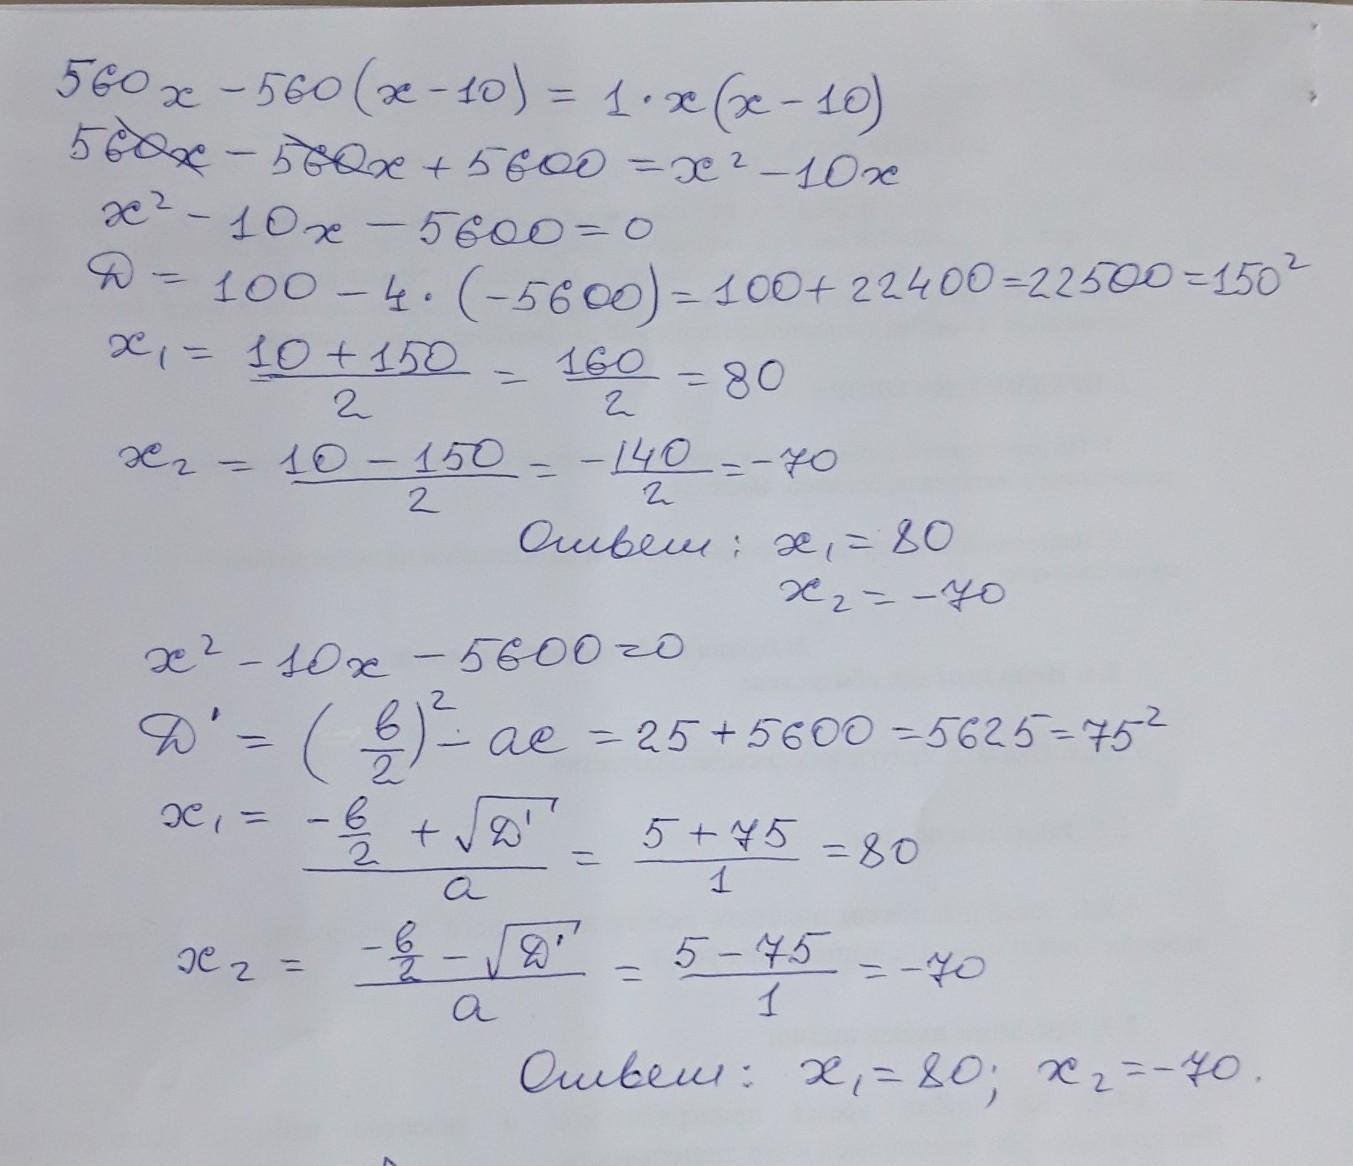 560x - 560(x - 10) = 1·x(x - 10)
560x - 560x + 5600 = x² - 10x
x² - 10x - 5600 = 0
D = 100 - 4·(-5600) = 100 + 22400 = 22500 = 150²
x₁ = (10 + 150)/2 = 160/2 = 80
x₂ = (10 - 150)/2 = -140/2 = -70
Ответ: x₁ = 80
x₂ = -70
x² - 10x - 5600 = 0
D' = (b/2)² - ac = 25 + 5600 = 5625 = 75²
x₁ = (-b/2 + √D')/a = (5 + 75)/1 = 80
x₂ = (-b/2 - √D')/a = (5 - 75)/1 = -70
Ответ: x₁ = 80; x₂ = -70.